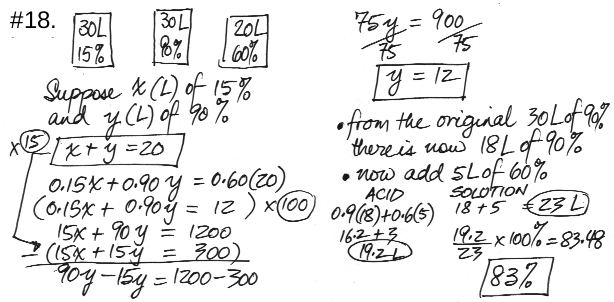 #18.
30L 30L 20L
15% 90% 60%
Suppose x(L) of 15%
and y(L) of 90%
x 15 x + y = 20
0.15x + 0.90y = 0.60(20)
(0.15x + 0.90y = 12) x 100
15x + 90y = 1200
- (15x + 15y = 300)
90y - 15y = 1200 - 300
75y = 900
75 75
y = 12
• from the original 30L of 90%
there is now 18L of 90%
• now add 5L of 60%
ACID SOLUTION
0.9(18)+0.6(5) 18 + 5 = 23 L
16.2 + 3
19.2 L
19.2 x 100% = 83.48
23
83%